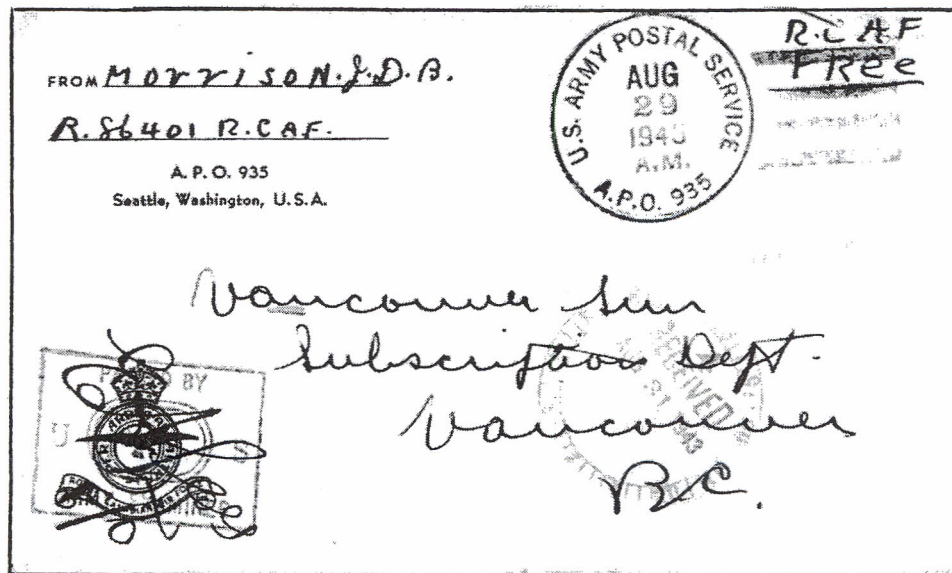 FROM Morrison. J.D.B.
R.86401 R.C.A.F.
A. P. O. 935
Seattle, Washington, U.S.A.
U.S. ARMY POSTAL SERVICE
AUG
29
A.M.
A.P.O. 935
R.C.A.F
FRee
Vancouver Sun
Subscription Dept.
Vancouver
B.C.
BY
RECEIVED